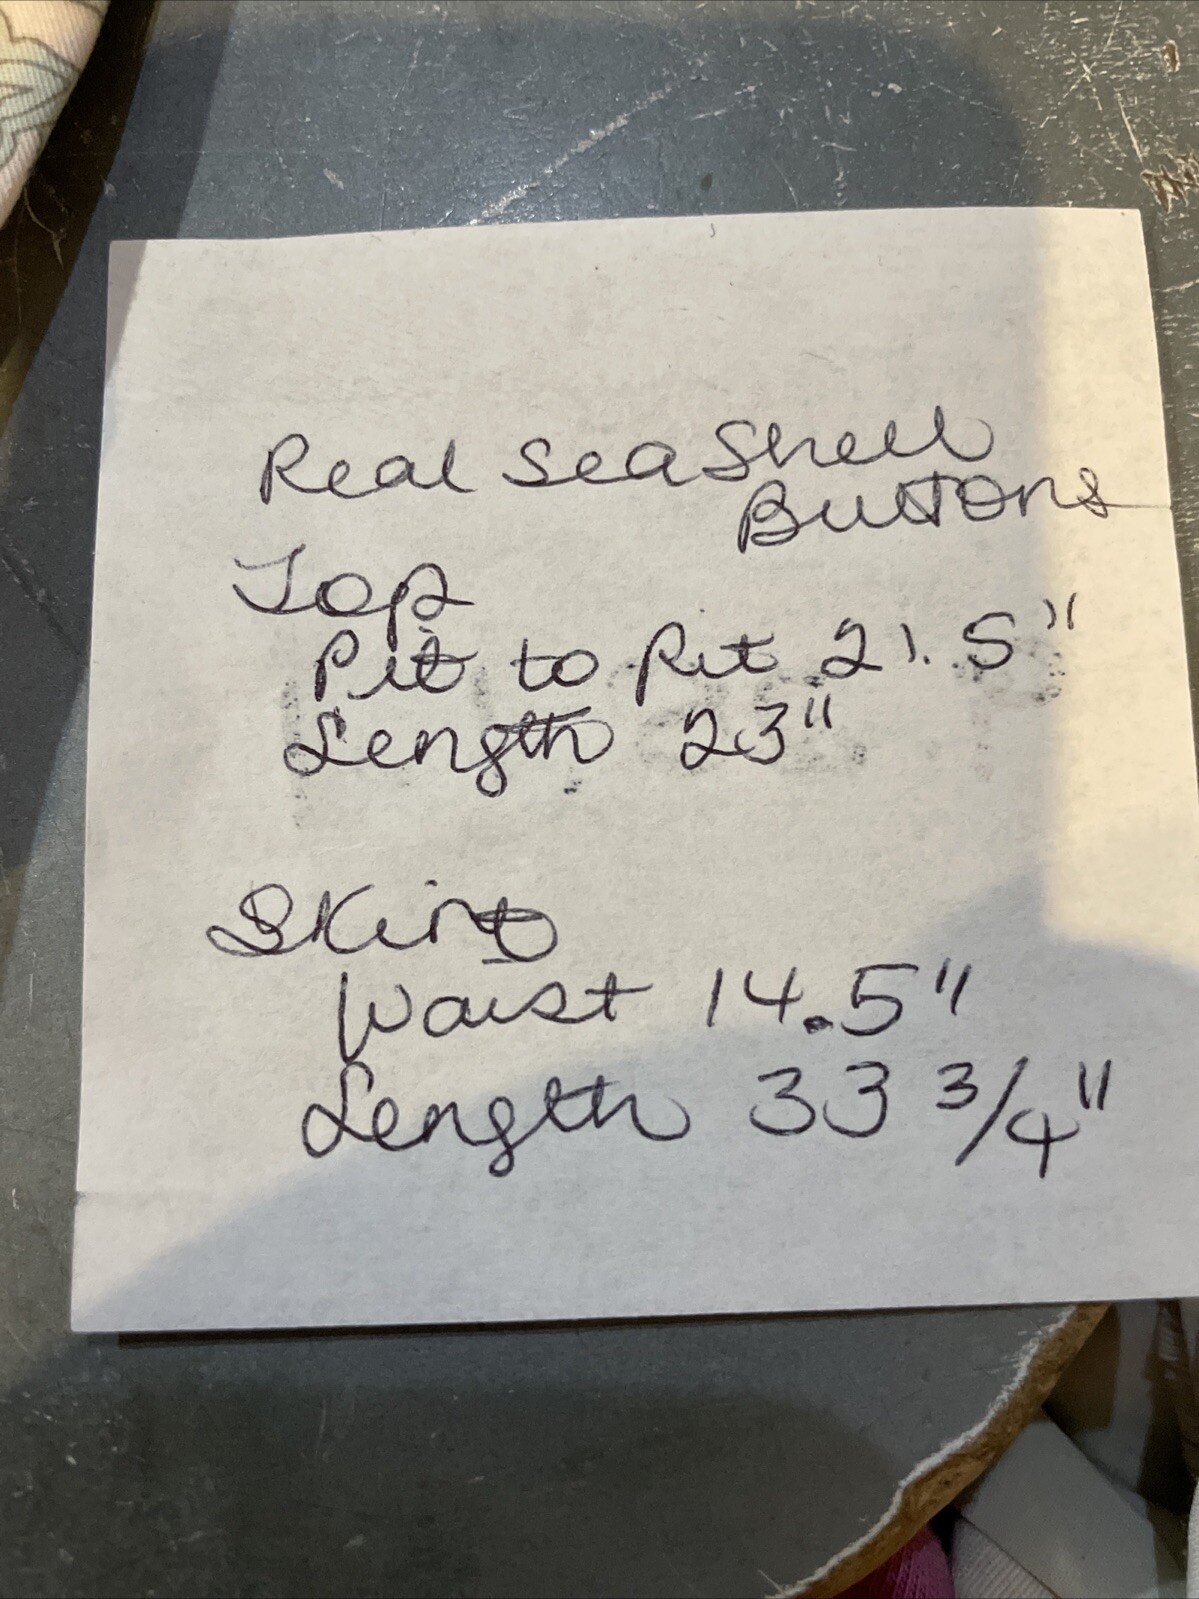 Real Sea Shell
Buttons
Top
Pit to Pit 21.5"
Length 23"
Skirt
Waist 14.5"
Length 33 3/4"